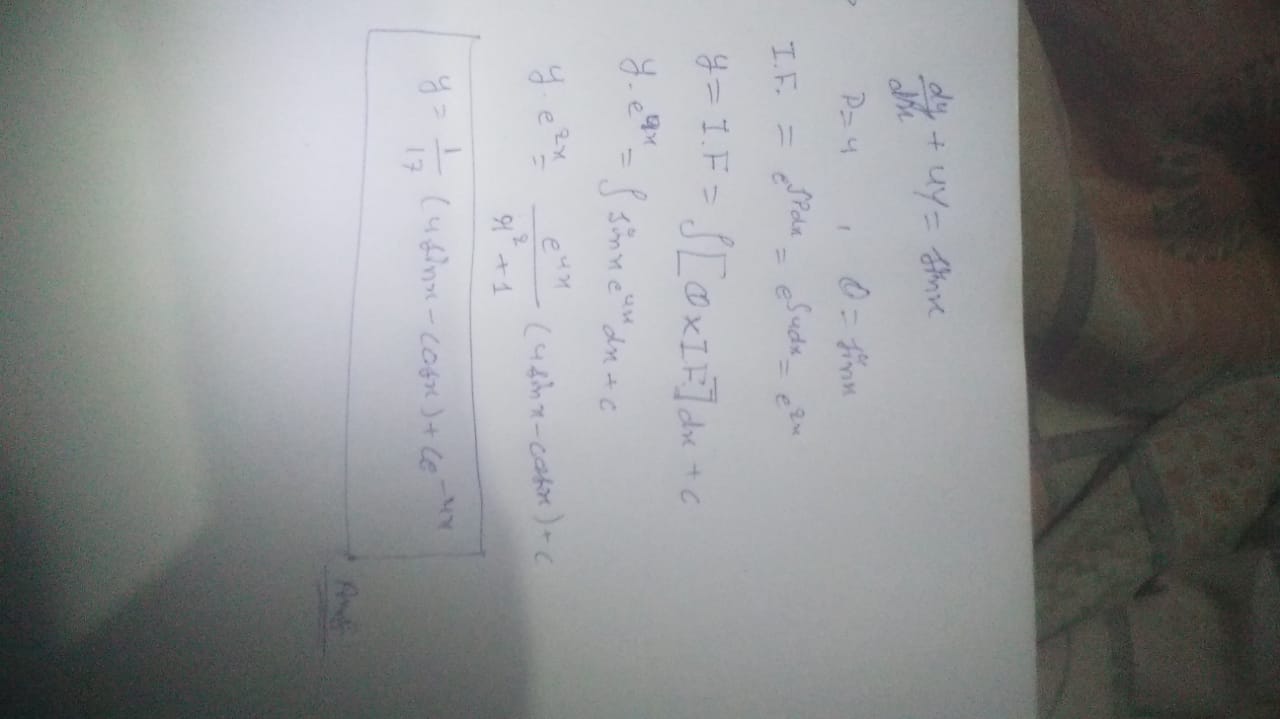 dy/dx + 4y = sinx
P=4 , Q = sinx
I.F. = e^∫Pdx = e^∫4dx = e^2x
y = I.F = ∫[Q x I.F.] dx + c
y. e^4x = ∫ sinx e^4x dx + c
y. e^2x = e^4x/4²+1 (4sinx - cosx) + c
y = 1/17 (4sinx - cosx) + ce^-4x
Ans